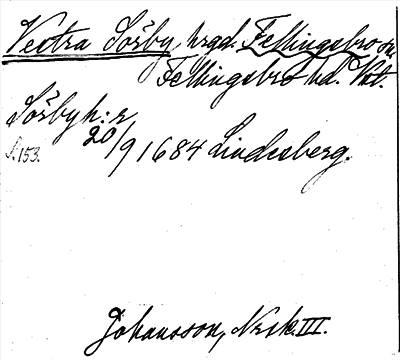 Vestra Sörby, hrgd. Fellingsbro sn
Fellingsbro hd. Vst.
Sörby h: r
S. 153. 20/9 1684 Lindesberg.
Johansson, Norik. III.